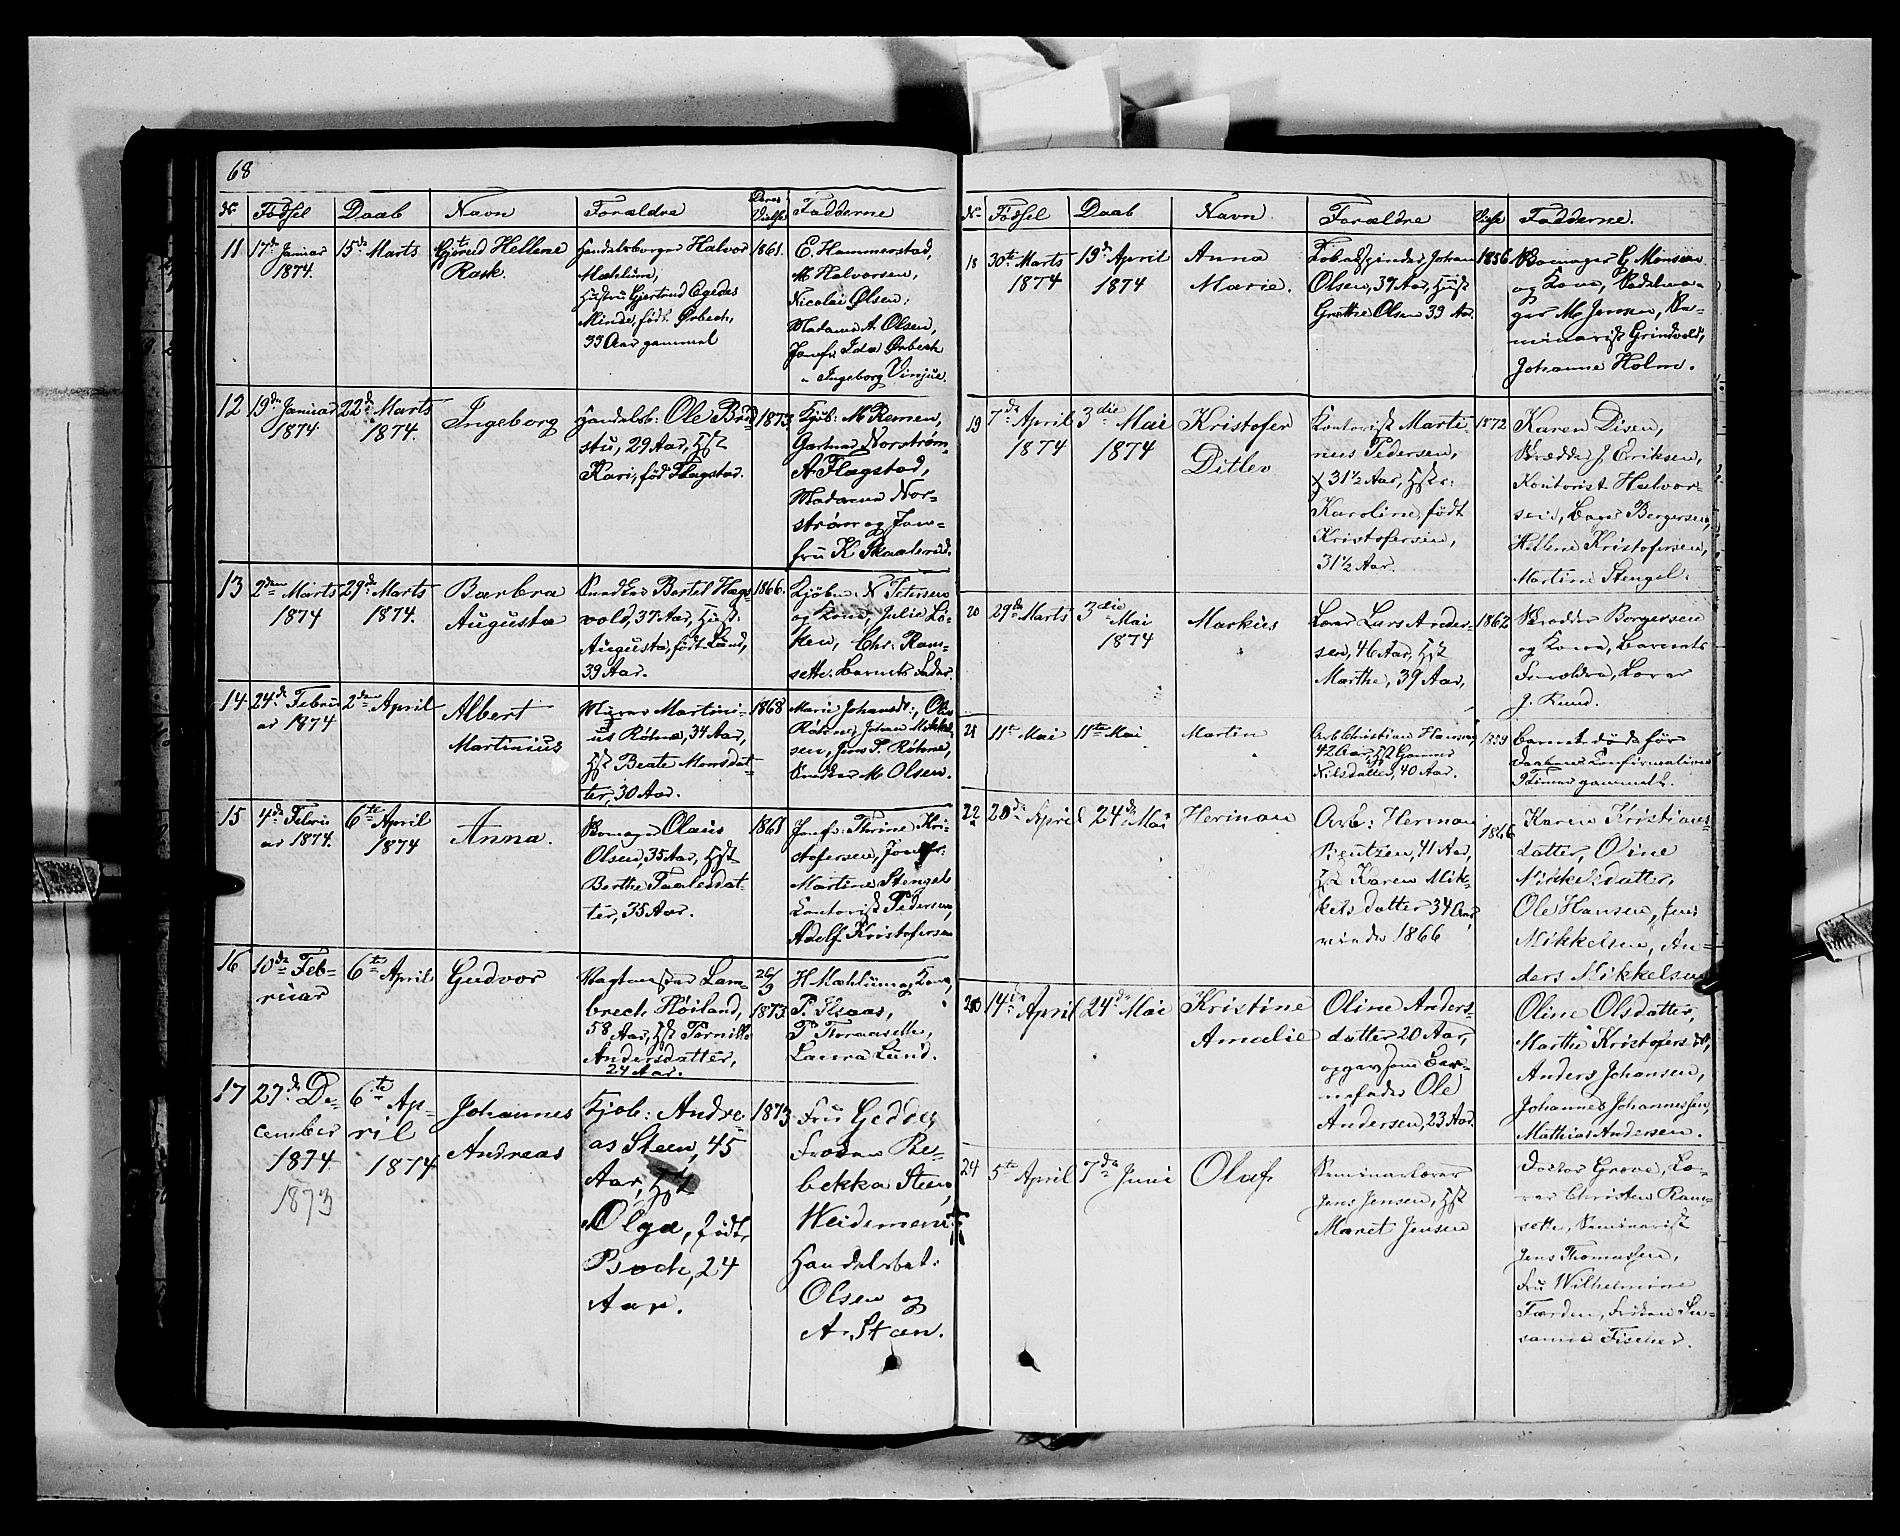 68
No Fødsel Daab Navn Forældre Deres Vielse Fadderne
11 17de Januar 1874. 15de Marts Gjertrud Hellene Rask. 1861.
Handelsborger Halvor
Mæhlum,
Hustru Gjertrud Egedes
Minde, født Ørbech,
33 Aar gammel
E. Hammerstad,
M. Halvorsen,
Nicolai Olsen,
Madame A. Olsen,
Jomfr. Ida Ørbech
" Ingeborg Vinjue.
12 19de Januar 1874 22de Marts 1874. Ingeborg 1873.
Handelsb: Ole Bød-
stu, 29 Aar, Hst
Kari, født Flagstad.
Kjøb: M. Remen,
Gartner Norstrøm,
A. Flagstad,
Madame Nor-
strøm og Jom-
fru K. Skaalerud.
13 2den Marts 1874 29de Marts 1874. Barbra Augusta 1866.
Snedker Bertel Hægs-
vold, 37 Aar, Hust:
Augusta, født Lund,
39 Aar.
Kjøbm. N. Petersen
og Kone, Julie Lø-
ken, Chr: Ram-
sette. Barnets Fader.
14 24de Februar 1874 2den April Albert Martinius 1868
Murer Martini-
us Røhne, 34 Aar,
Hst Beate Monsdat-
ter, 30 Aar.
Marie Johansdr:, Olus
Røhne, Johan Mikkel-
sen, Jens P. Røhne,
Snedker M. Olsen.
15 4de Februar 1874. 6te April 1874 Anna. 1861
Olaus
Olsen, 35 Aar, Hst
Berthe Paalesdat-
ter, 35 Aar.
Jomfr: Thrine Kri-
stofersen, Jomfr:
Martine Stengel
Kontorist Pedersen,
Adolf Kristofersen
16 10de Februar 6te April Gudvor 26/9 1873
Vagtmester Lam-
brech Høiland,
58 Aar, Hst Pernille
Andersdatter,
24 Aar.
H. Mæhlum og Kone,
P. Ilsaas,
P. Foraasette,
Laura Lund.
17 27de December 1874 1873 6te April 1874 Johannes Andreas 1873
Kjøb: Andre-
as Steen, 45
Aar, Hst
Olga, født
Boch, 24
Aar.
Fru Gedde,
Frøken Re-
bekka Steen,
Weidemann
Handelsbet:
Olsen og
A. Steen.
No Fødsel Daab Navn Forældre Vielse Fadderne.
18 30te Marts 1874 19de April 1874 Anna Marie. 1856
Tobakspinder Johan
Olsen, 39 Aar, Hust
Grethe Olsen 39 Aar.
G. Monsen
og Kone, Sadelma-
ger M. Jensen, Se-
minarist Grindvold,
Johanne Holm.
19 7de April 1874 3die Mai 1874 Kristofer Ditlev 1872
Kontorist Marti-
nus Pedersen,
31½ Aar, Hst:
Karoline, født
Kristofersen,
31½ Aar.
Karen Disen,
J. Eriksen,
Kontorist Halvor-
sen, Bergersen,
Hellene Kristofersen,
Martine Stengel.
20 29de Marts 3die Mai 1874 Markus 1862
Lars Ander-
sen, 46 Aar, Hst
Marthe, 39 Aar,
Skredder Borgersen
og Kone, Barnets
Forældre,
J. Rund.
21 11te Mai 11te Mai Martin 1859
Arb. Christian Hansen,
42 Aar, Hst Gunner
Nilsdatter, 40 Aar.
Barnet døde før
Daabens Konfirmation
9 Timer gammelt.
22 20de April 24de Mai Herman 1866
Arb: Herman
41 Aar,
Hst Karen Mik-
kelsdatter 34 Aar
viede 1866
Karen Kristians-
datter, Oline
Mikkelsdatter,
Ole Hansen, Jens
Mikkelsen, An-
ders Mikkelsen
14de April 24de Mai Kristine Amalie
Oline Anders-
datter 20 Aar,
opgav som Bar-
nefader Ole
Andersen, 23 Aar.
Oline Olsdatter,
Marthe Kristofersdr,
Anders Johansen,
Johannes Johannessen,
Mathias Andersen.
24 5te April 7de Juni Olaf
Seminarlærer
Jens Jensen, Hst
Maret Jensen
Doctor Greve, Læ-
rer Christen Ram-
sette, Seminarist
Jens Thomassen,
Fru Wilhelmine
Færden, Frøken Su-
sanne Fischer.